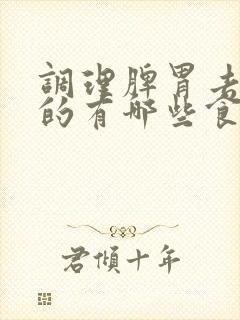 調理脾胃表
的有哪些食
君傾十年